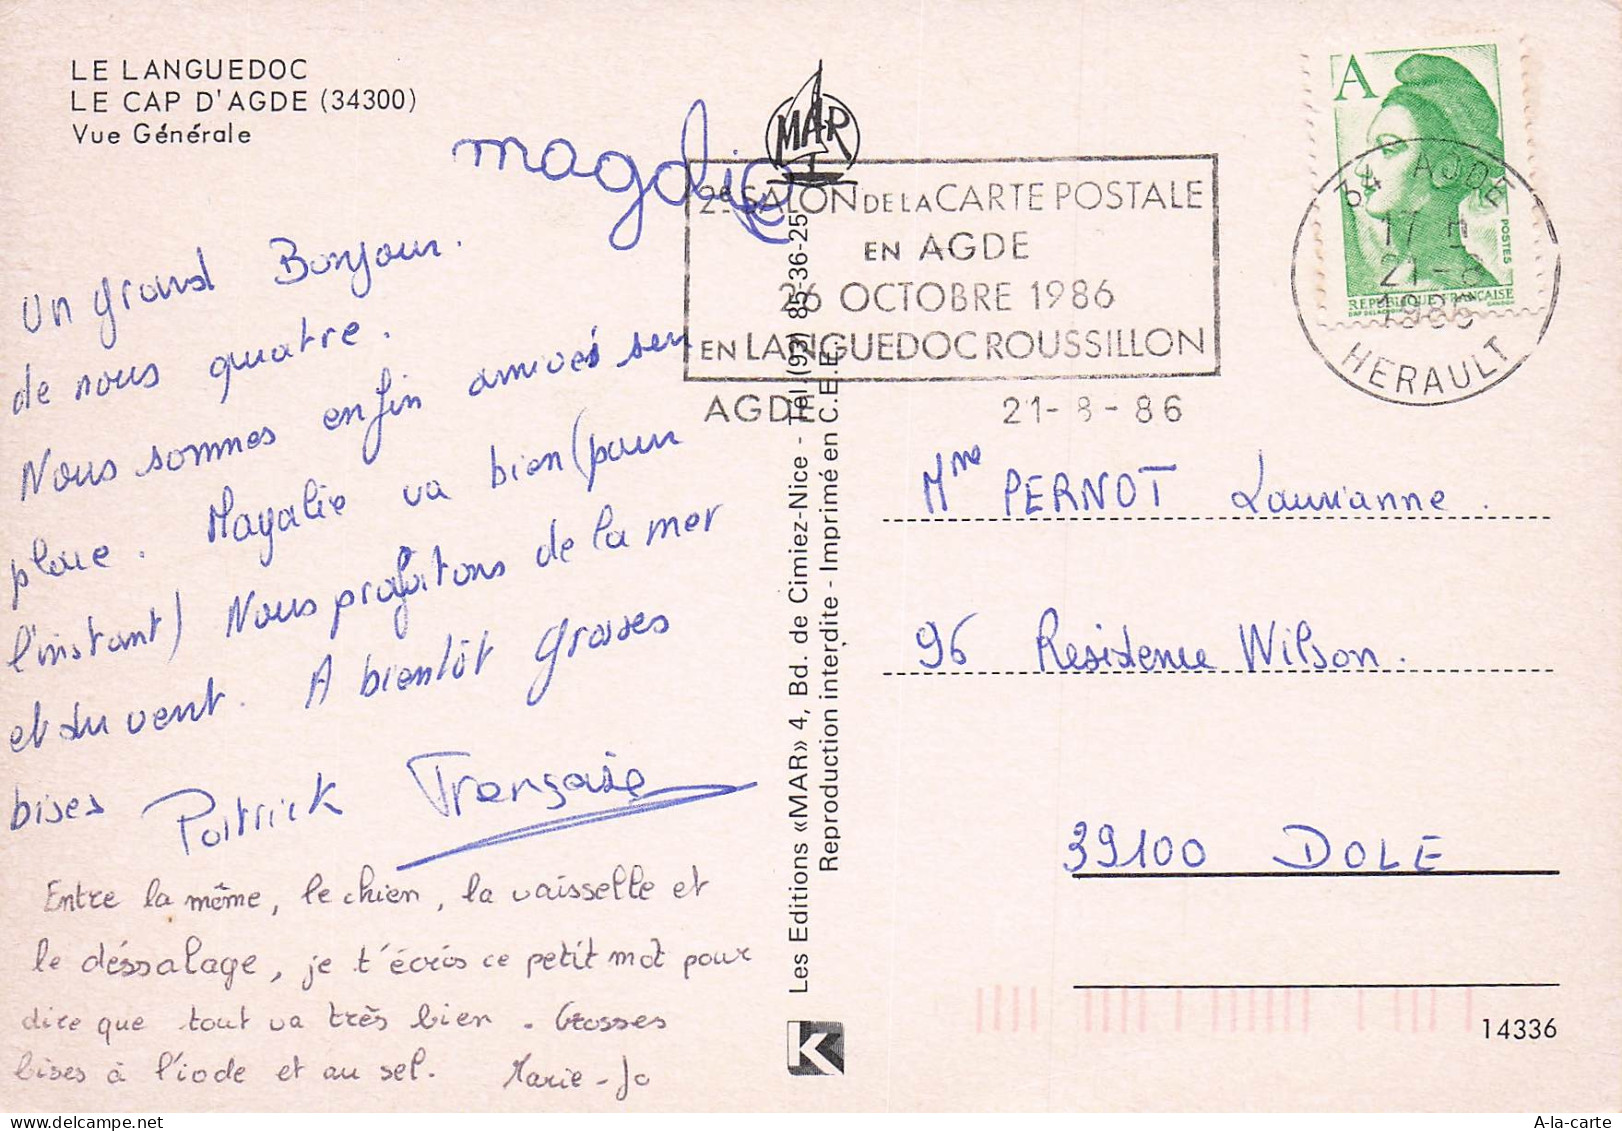 LE LANGUEDOC
LE CAP D'AGDE (34300)
Vue Générale
magalie
Un grand Bonjour.
de nous quatre.
Nous sommes enfin arrivés sur
place. Magalie va bien (pour
l'instant) Nous profitons de la mer
et du vent. A bientôt grosses
bises Patrick Françoise
Entre la même, le chien, la vaisselle et
le déssalage, je t'écris ce petit mot pour
dire que tout va très bien. Grosses
bises à l'iode et au sel. Marie-Jo
MAR
Les Editions «MAR» 4, Bd. de Cimiez-Nice - Tél. (93) 85-36-25
Reproduction interdite - Imprimé en C.E.E.
K
2e SALON DE LA CARTE POSTALE
EN AGDE
26 OCTOBRE 1986
EN LANGUEDOC ROUSSILLON
AGDE 21-8-86
A
POSTES
REPUBLIQUE FRANÇAISE
34 AGDE
17 H
21-8
1986
HERAULT
Mme PERNOT Laurianne.
96 Residence Wilson.
39100 DOLE
14336
A-la-carte